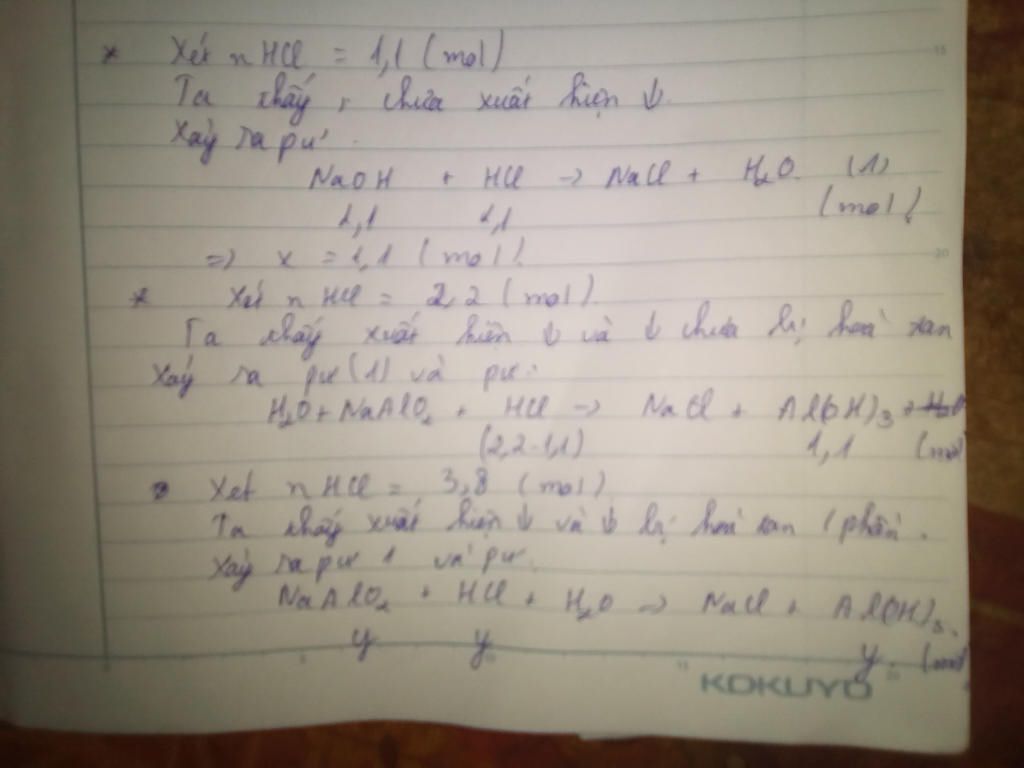 * Xét n HCl = 1,1 (mol)
Ta thấy, chưa xuất hiện ↓.
Xảy ra pư:
NaOH + HCl → NaCl + H₂O. (1)
1,1 1,1 (mol)
=> x = 1,1 (mol).
* Xét n HCl = 2,2 (mol).
Ta thấy xuất hiện ↓ và ↓ chưa bị hoà tan
Xảy ra pư (1) và pư:
H₂O + NaAlO₂ + HCl → NaCl + Al(OH)₃
(2,2-1,1) 1,1 (mol)
Xét n HCl = 3,8 (mol)
Ta thấy xuất hiện ↓ và ↓ bị hoà tan 1 phần.
Xảy ra pư 1 và pư:
NaAlO₂ + HCl + H₂O → NaCl + Al(OH)₃.
y y y. (mol)
KOKUYO